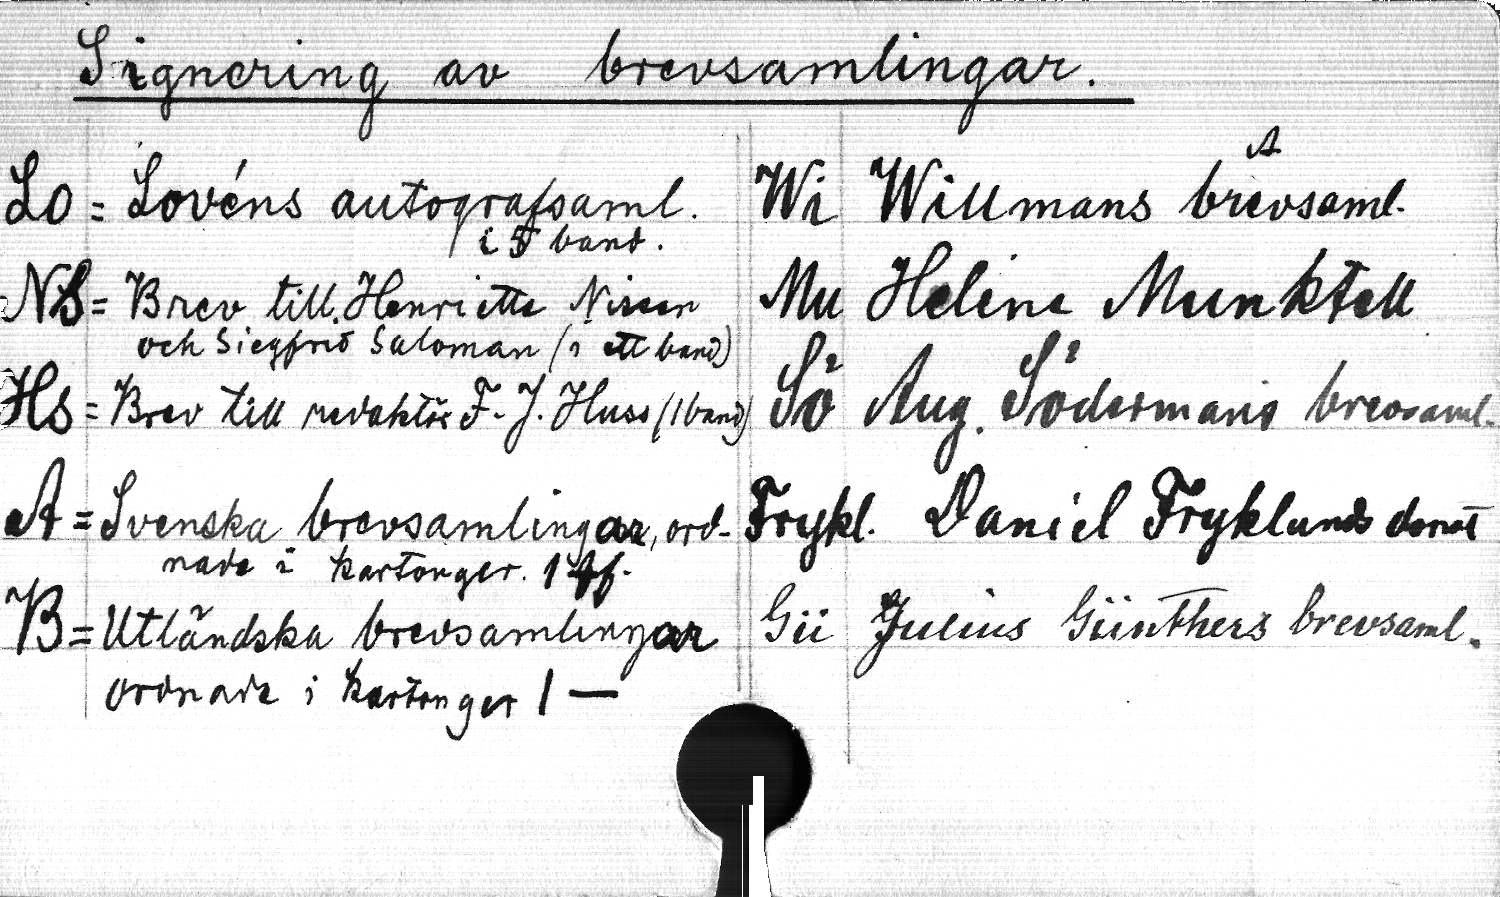 Signering av brevsamlingar.
Lo = Lovéns autografsaml.
i 5 band.
NS = Brev till Henriette Nissen
och Siegfrid Saloman (i ett band)
Hs = Brev till redaktör F. J. Huss (1 band)
A = Svenska brevsamlingar, ord-
nade i kartonger. 1 ff.
B = Utländska brevsamlingar
ordnade i kartonger 1 —
A
Wi Willmans brevsaml.
Mu Helena Munktell
Sö Aug. Södermans brevsaml.
Frykl. Daniel Fryklunds donat
Gü Julius Günthers brevsaml.